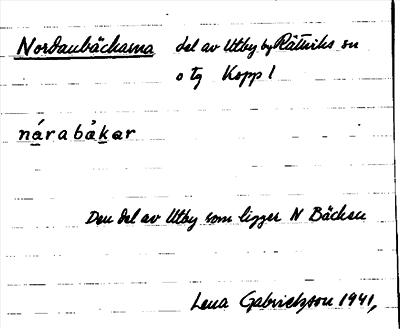 Nordanbäckarna del av Utby by Rättviks sn
o tg Kopp l
nárabákar
Den del av Utby som ligger N Bäcken
Lena Gabrielsson 1941,